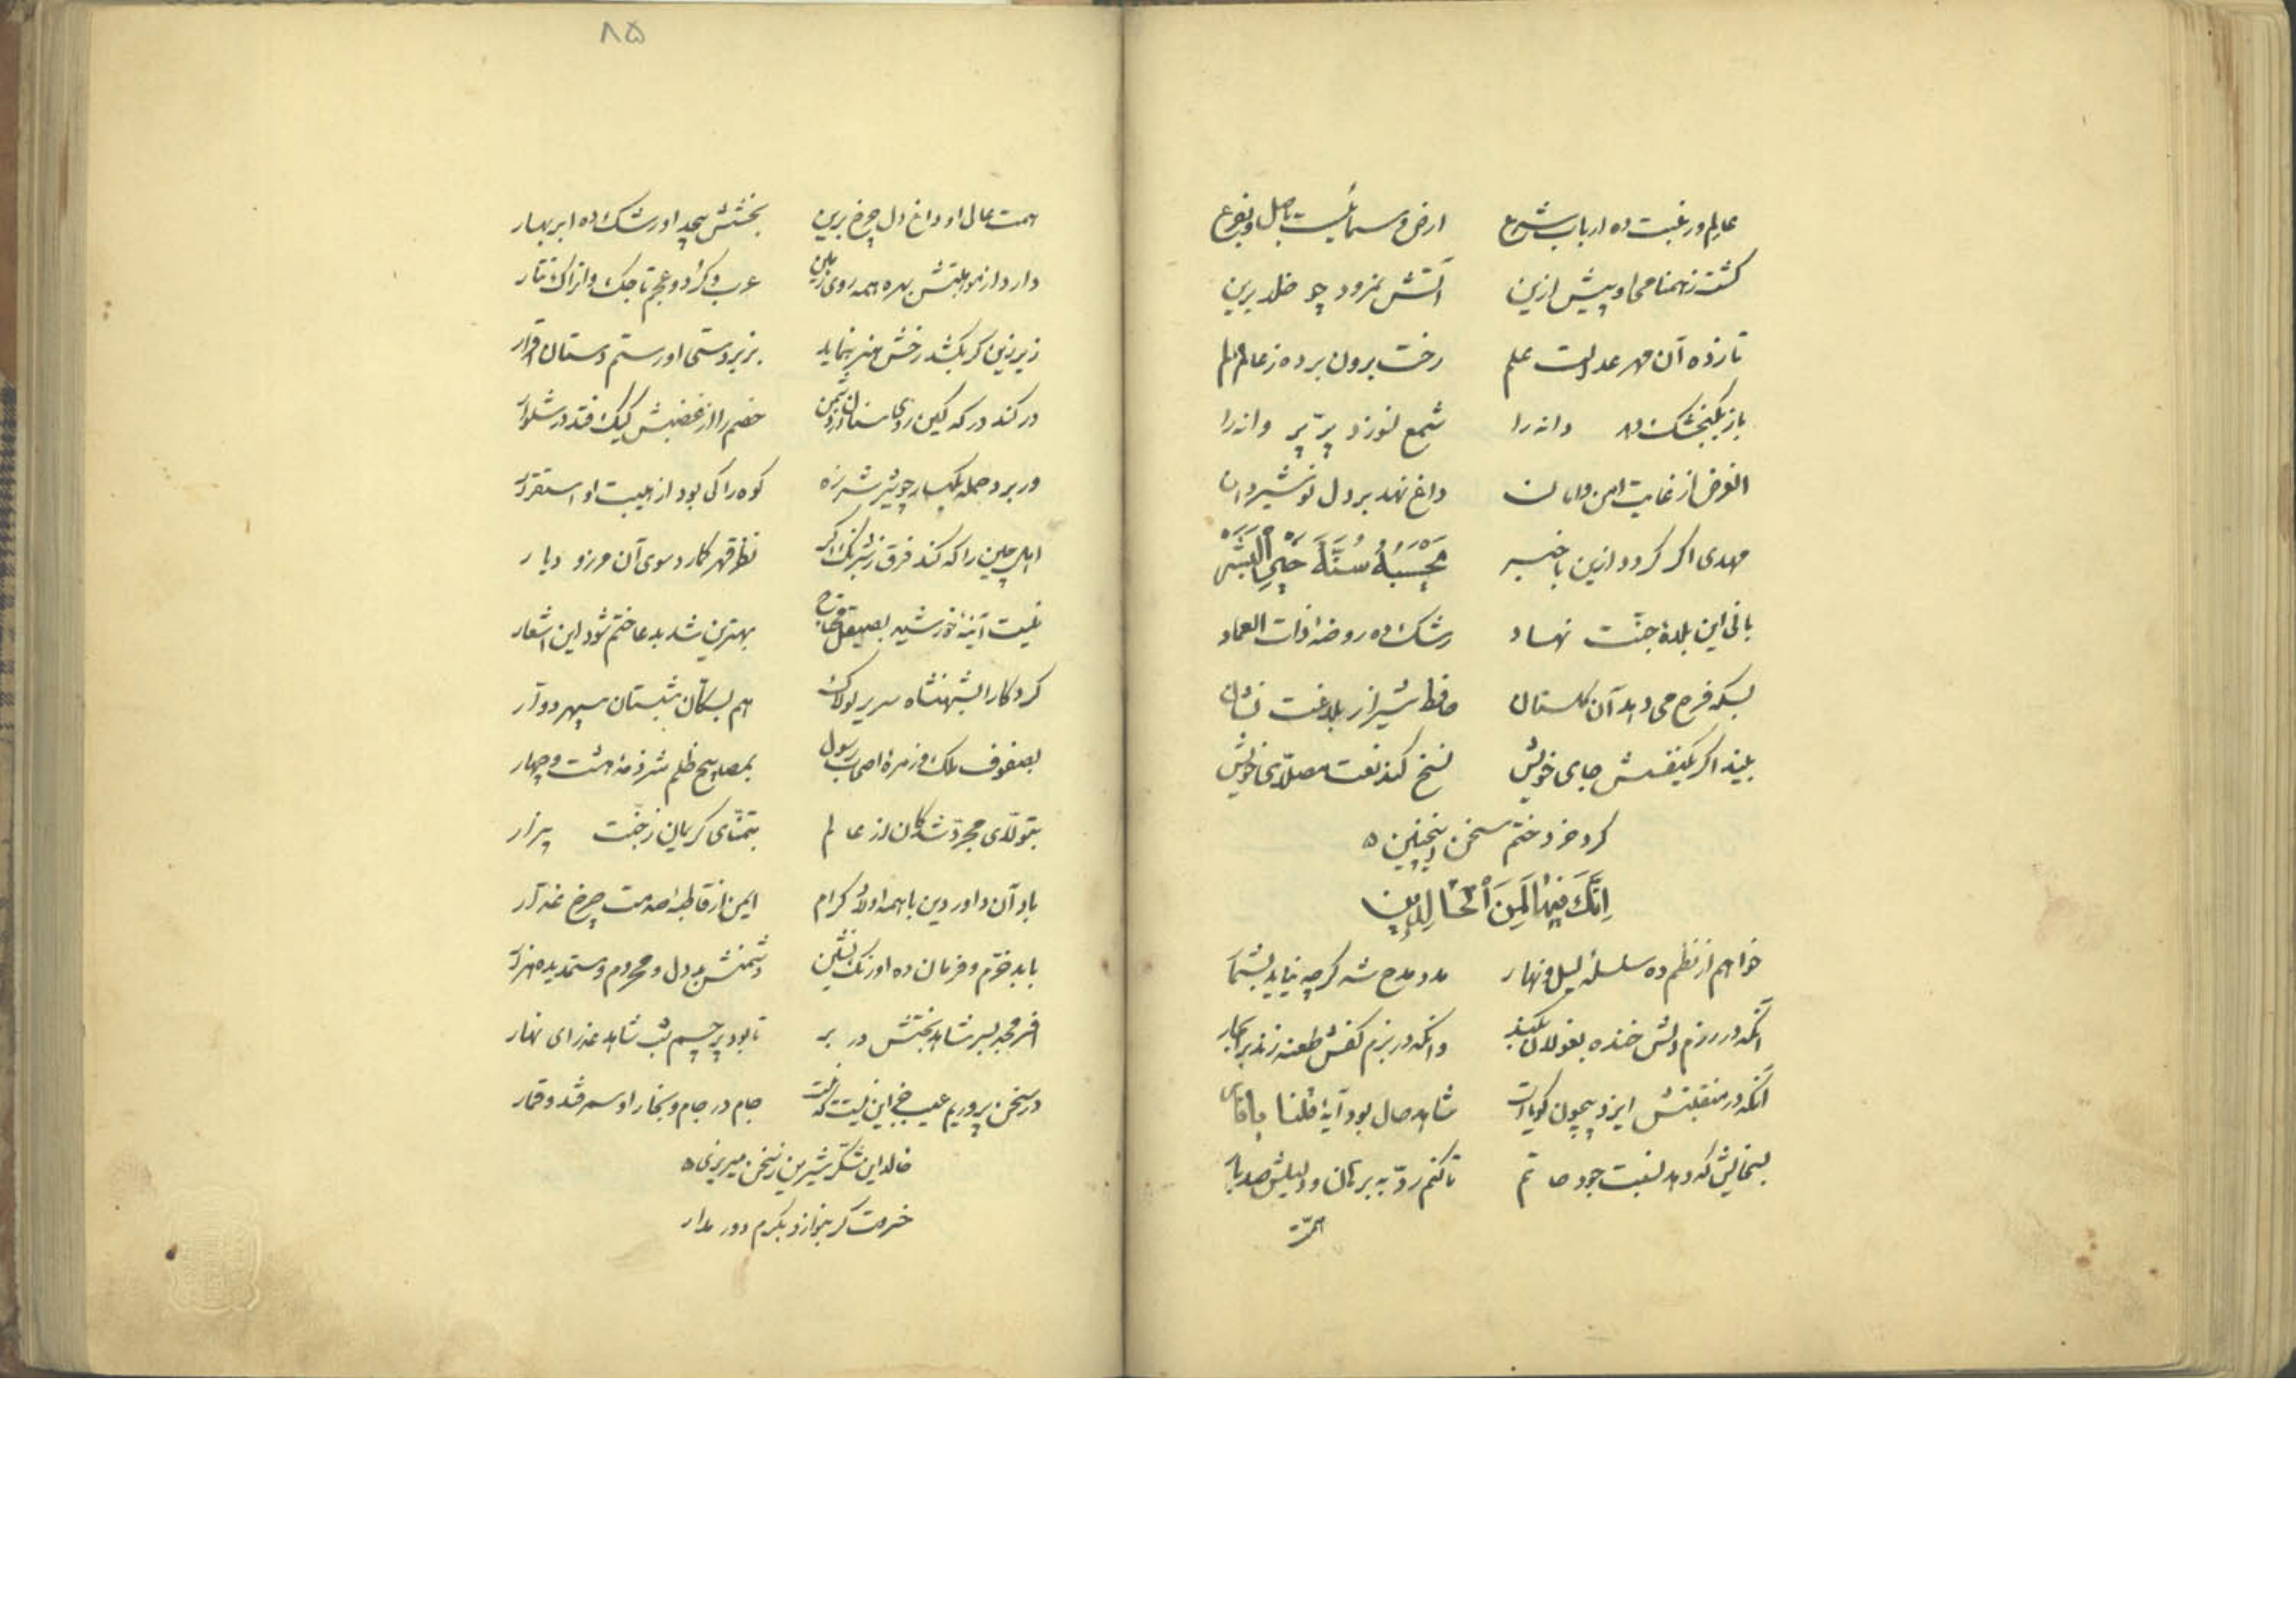 عالم و رغبت ده ارباب شرع    ارض و سمائیست باصل و بفرع
کشت زهمنامی او پیش ازین    آتش نمرود چو خلد برین
تا زده آن مهر عدالت علم    رخت برون برده ز عالم الم
باز بکنجشک دهد دانه را    شمع نسوزد پر پروانه را
الغرض از غایت امن و امان    داغ نهد بر دل نوشیروان
مهدی اگر کردد ازین باخبر    یحسبه سنة خیر البشر
بانی این بلدهٔ جنّت نهاد    رشک ده روضهٔ ذات العماد
بسکه فرح می دهد آن کلستان    حافظ شیراز بلاغت نشان
بیند اکر یکنفسش جای خویش    نسخ کند نعت مصلّای خویش
کرد خرد ختم سخن اینچنین
اِنَّکَ فیها لَمِنَ الخالدین
خواهم از نظم ده سلسلهٔ لیل و نهار    مدد مدح شه کرچه نیاید بشمار
آنکه در رزم دلش خنده بفولاد کند    وانکه در بزم کفش طعنه زند بر بحار
آنکه در منقبتش ایزد بیچون کویاست    شاهد حال بود آیهٔ قلنا یا نار
بسخایش که دهد نسبت جود حاتم    تا کنم ردّ به برهان و دلیلش صد بار
همّت
۸۵
همت عالی او داغ دل چرخ برین    بخشش بیحد او رشک ده ابر بهار
دارد از موهبتش بهره همه روی زمین    عرب و کرد و عجم تاجک و اتراک تتار
زیر زین کر بکشد رخش هنر بنماید    بزبردستی او رستم دستان اقرار
در کند در که کین روی سنان در دشمن    خصم را از غضبش کیک فتد در شلوار
ور برد حمله بکهسار چو شیر شرزه    کوه را کی بود از هیبت او استقرار
اهل چین را که کند فرق ز نیرنگ اکر    نظر قهر کمارد سوی آن مرز و دیار
نیست آئینهٔ خورشید بصیقل محتاج    بهترین شد بدعا ختم شود این اشعار
کردکارا بشهنشاه سریر لولاک    هم بسکان شبستان سپهر دوّار
بصفوف ملک و زمرهٔ اصحاب رسول    بمصابیح ظلم شرذمهٔ هشت و چهار
بتولّای مجرّد شدکان از عالم    بتمنّای کریمان ز جنّت بیزار
باد آن داور دین با همه اولاد کرام    ایمن از قاطبهٔ صدمت چرخ غدّار
باد خرّم و فرمان ده و اورنک نشین    دشمنش بددل و محروم و ستمدیده هزار
افسر مجد بسر شاهد بختش در بر    تا بود پرچم شب شاهد عذرای نهار
در سخن پروریم عیب جز این نیست که نیست    جام در جام و بخارا و سمرقند و قمار
خالد این شکّر شیرین ز سخن میریزی
خرمت کر بنوازد بکرم دور مدار